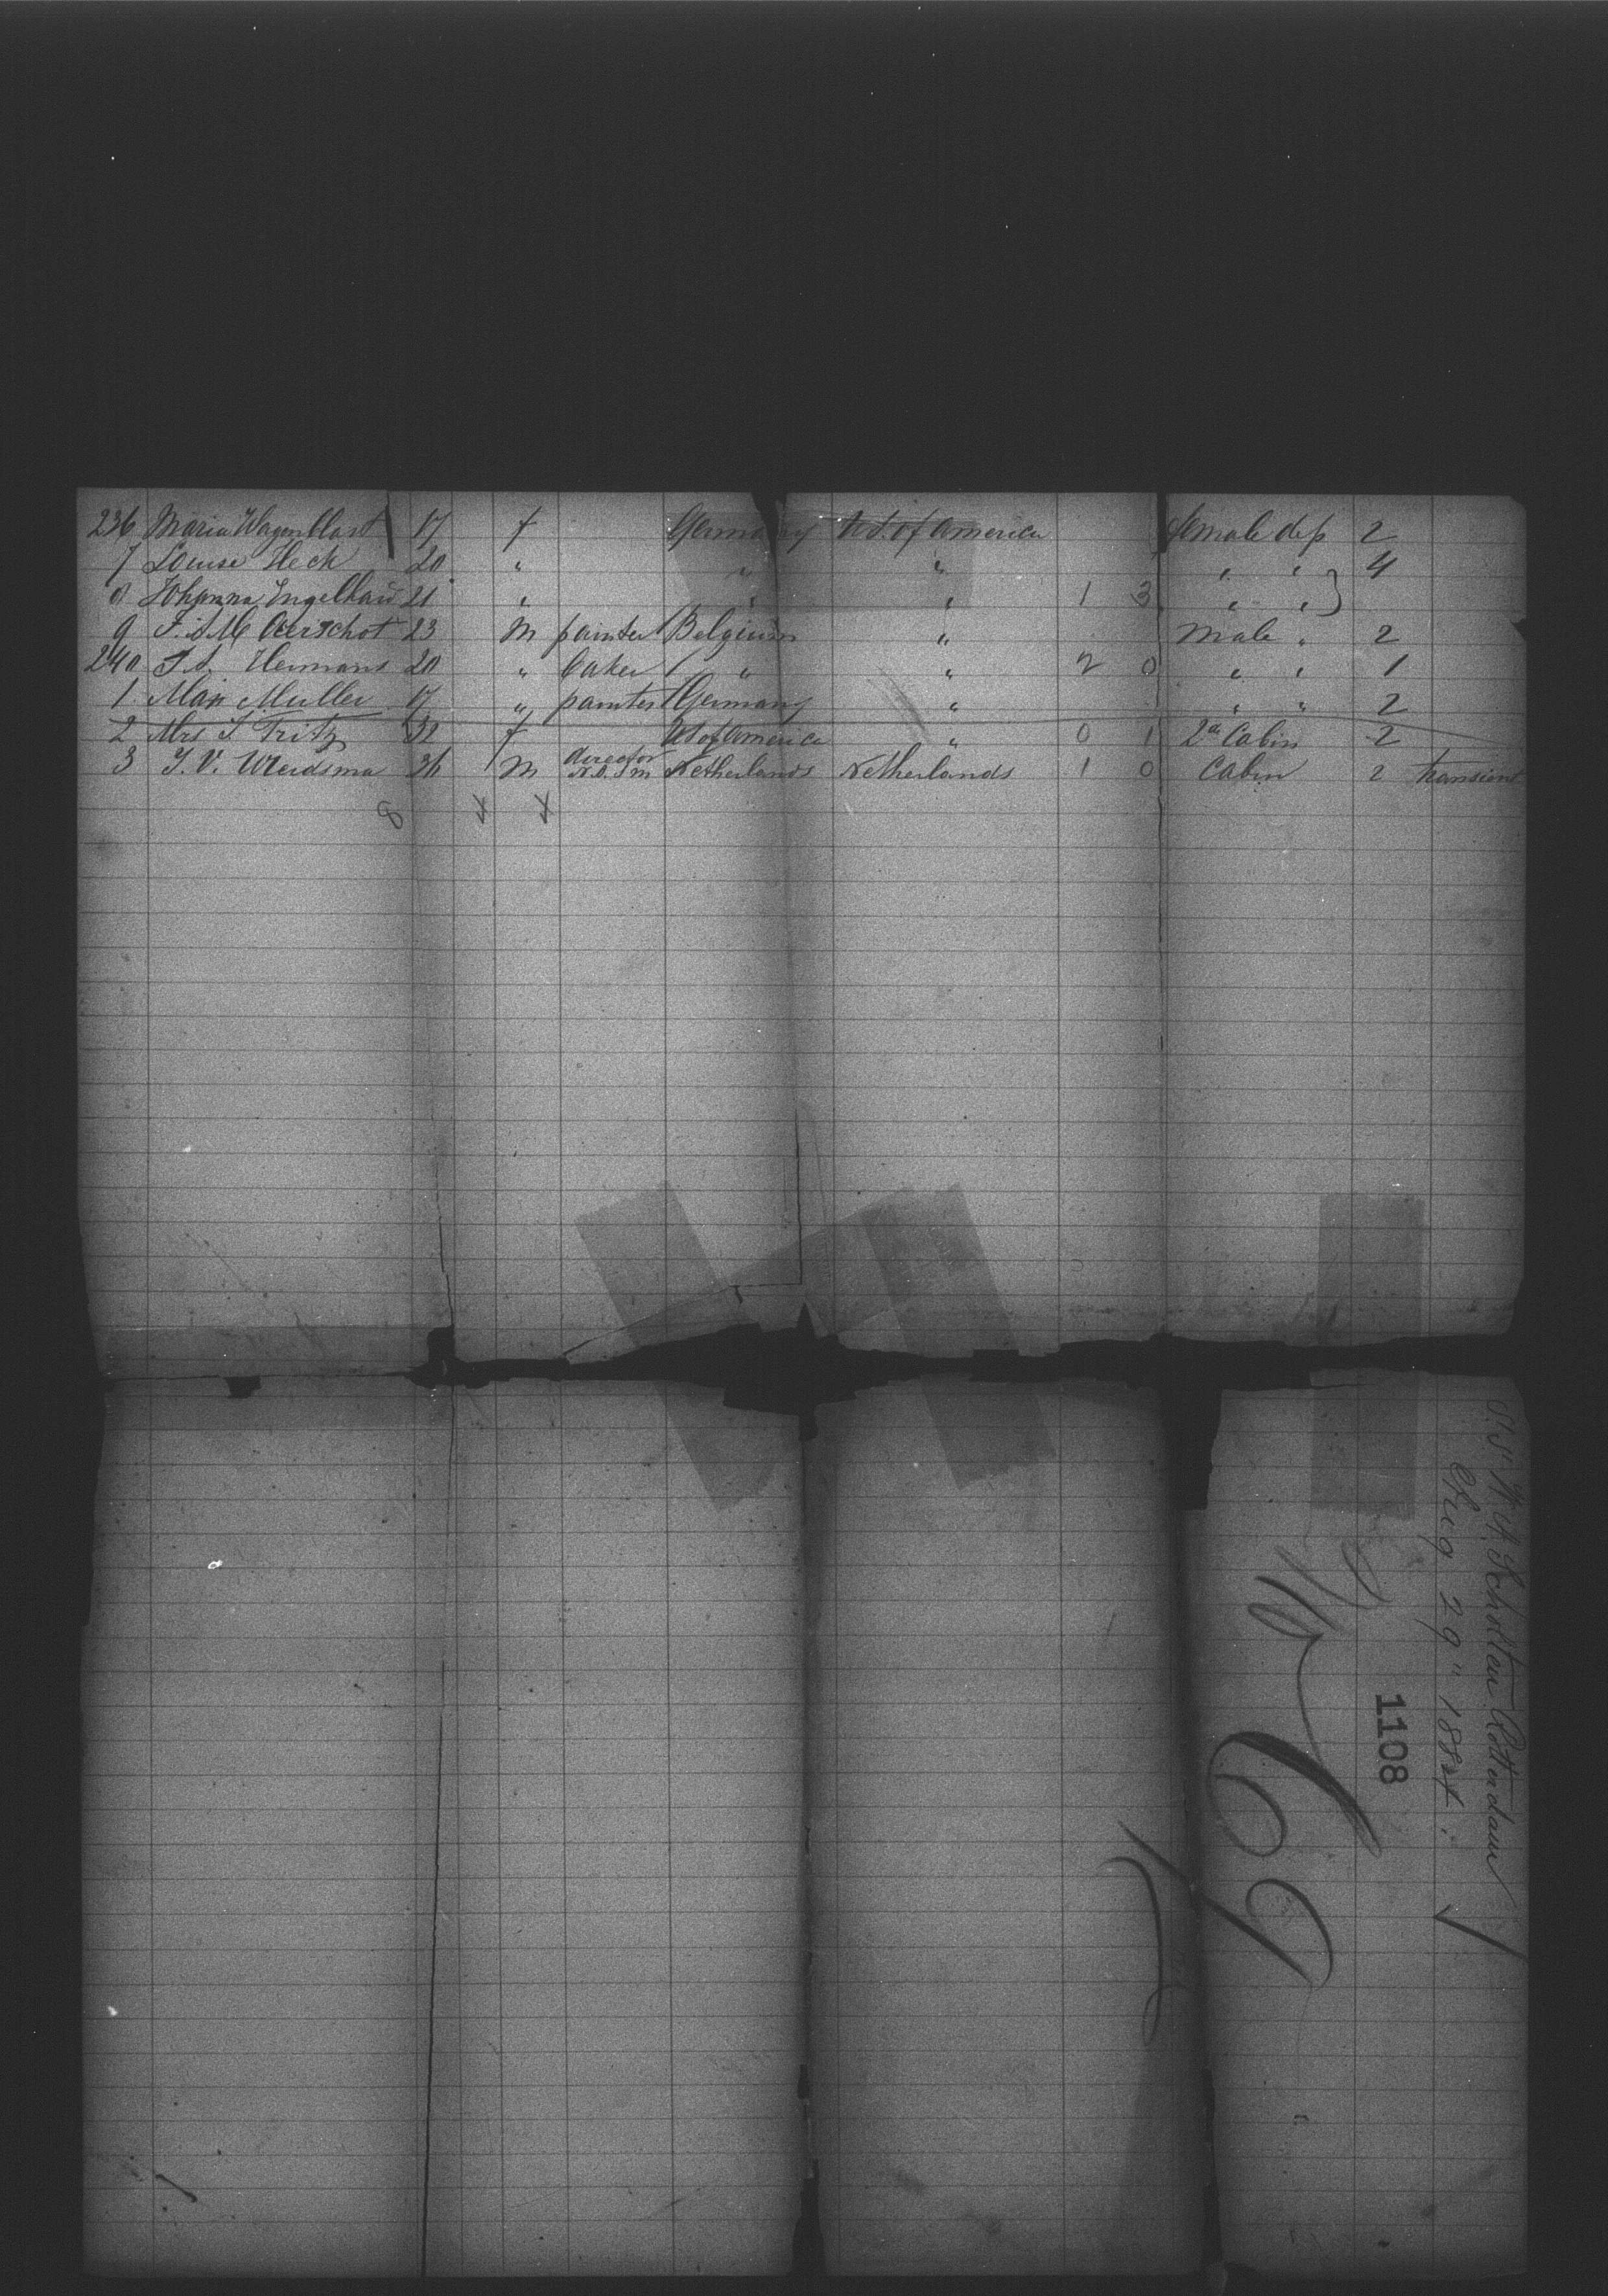 236 Maria Wagenblast 17 f Germany U S. of America female dep 2
7 Louise Heck 20 " " " " " 4
8 Johanna Engelhard 21 " " " 1 3 " "
9 Aerschot 23 M painter Belgium " male " 2
240 Hermans 20 " baker " " 2 0 " " 1
1 Max Muller 17 " painter Germany " " " 2
2 Mrs Fritz 32 f US of America " 0 1 2a Cabin 2
3 Wierdsma 36 M director N.A.S.M Netherlands Netherlands 1 0 Cabin 2 transient
8 4 4
S.S. W. A. Scholten Rotterdam
Aug 29" 1884.
1108
69